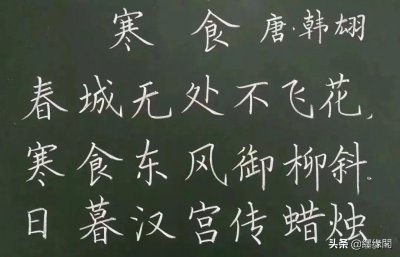 寒食 唐·韩翃
春城无处不飞花,
寒食东风御柳斜。
日暮汉宫传蜡烛
头条 @缠缘阁